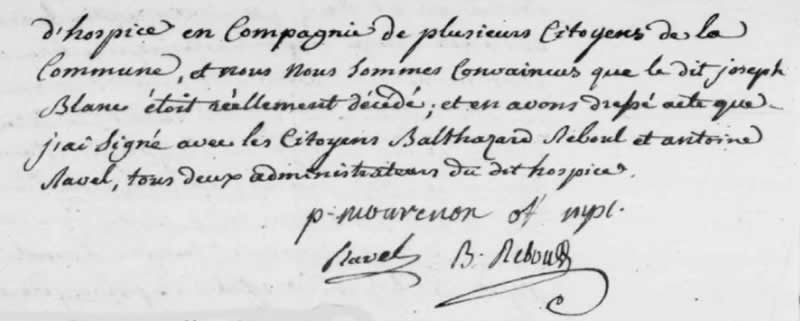 d'hospice en Compagnie de plusieurs Citoyens de la
Commune, et nous nous sommes Convaincus que le dit joseph
Blanc étoit réellement décédé; et en avons dressé acte que
j'ai signé avec les Citoyens Balthazard Reboul et antoine
Ravel, tous deux administrateurs du dit hospice.
p. mourenon off mpl.
Ravel B. Reboul